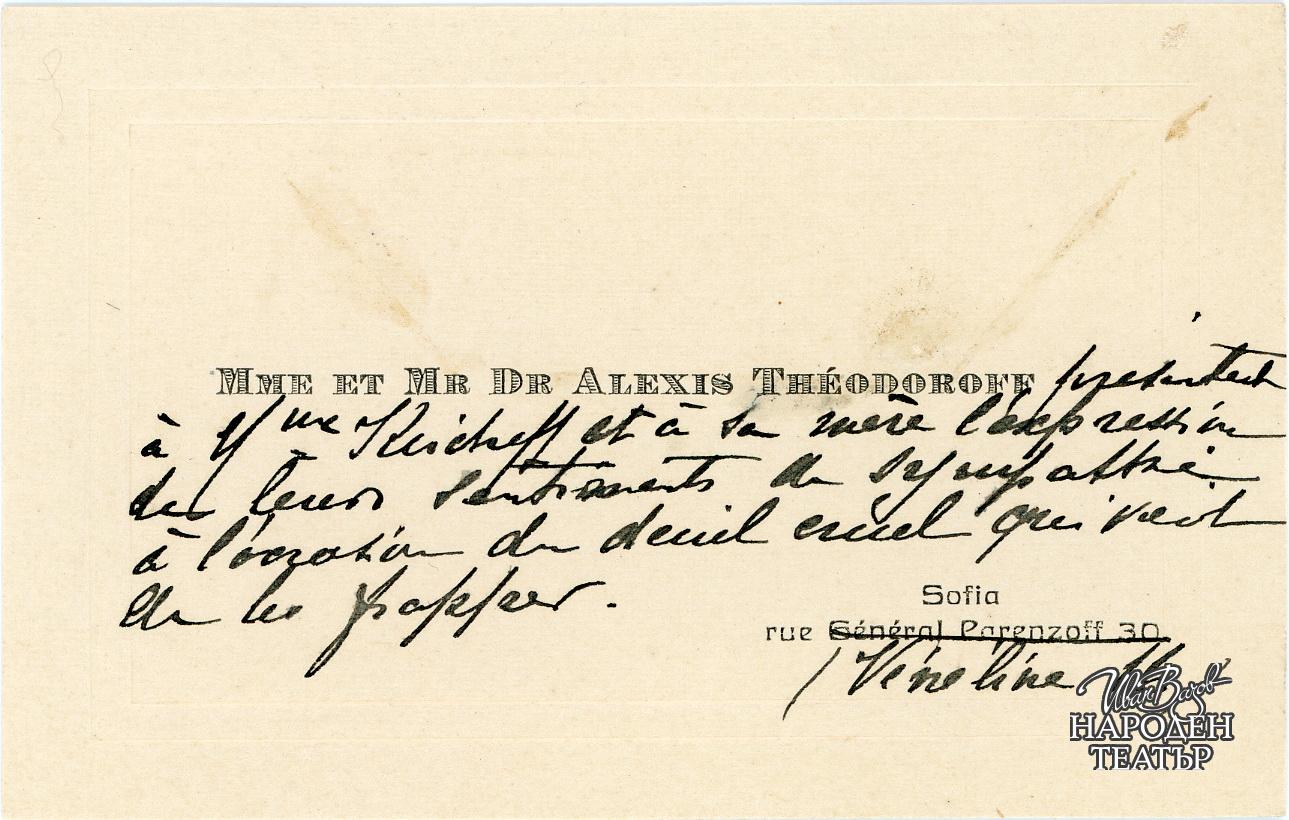 MME ET MR DR ALEXIS THÉODOROFF présentent
à Mme Kircheff et à sa mère l'expression
de leurs sentiments de sympathie
à l'occasion du deuil cruel qui vient
de les frapper.
Sofia
rue Général Parenzoff 30
Vénéline
Иван Вазов
НАРОДЕН
ТЕАТЪР